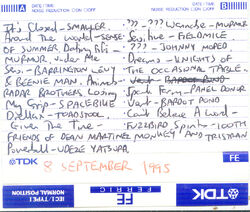 A DATE/TIME
NOISE REDUCTION □ON □OFF
B DATE/TIME
NOISE REDUCTION □ON □OFF
It's Closed - SMALLER
Around The World - SENSE
OF SUMMER Dating Girl -
MURMUR under Me
Sez - BARRINGTON LEVY
& BEENIE MAN
RADAR BROTHERS Losing
My Grip - SPACEBIKE
- TOADSTOOL
Given The Time -
FRIENDS OF DEAN MARTINEZ MONKEY AND TRISTRAM
- UDEZE YATSURA
- ??? - ??? - MURMUR
Sexitive - FIELDMICE
??? - JOHNNY MOPED
Dreams - KNIGHTS OF
THE OCCASIONAL TABLE
Vent - BARDOT POND
Speak Form - PANEL DONOR
Vent - BARDOT POND
Can't Believe A Word -
FUZZBIRD Spin - 100TH
TDK
8 SEPTEMBER 1995
FE
IEC I / TYPE I
NORMAL POSITION
FERRIC
TDK